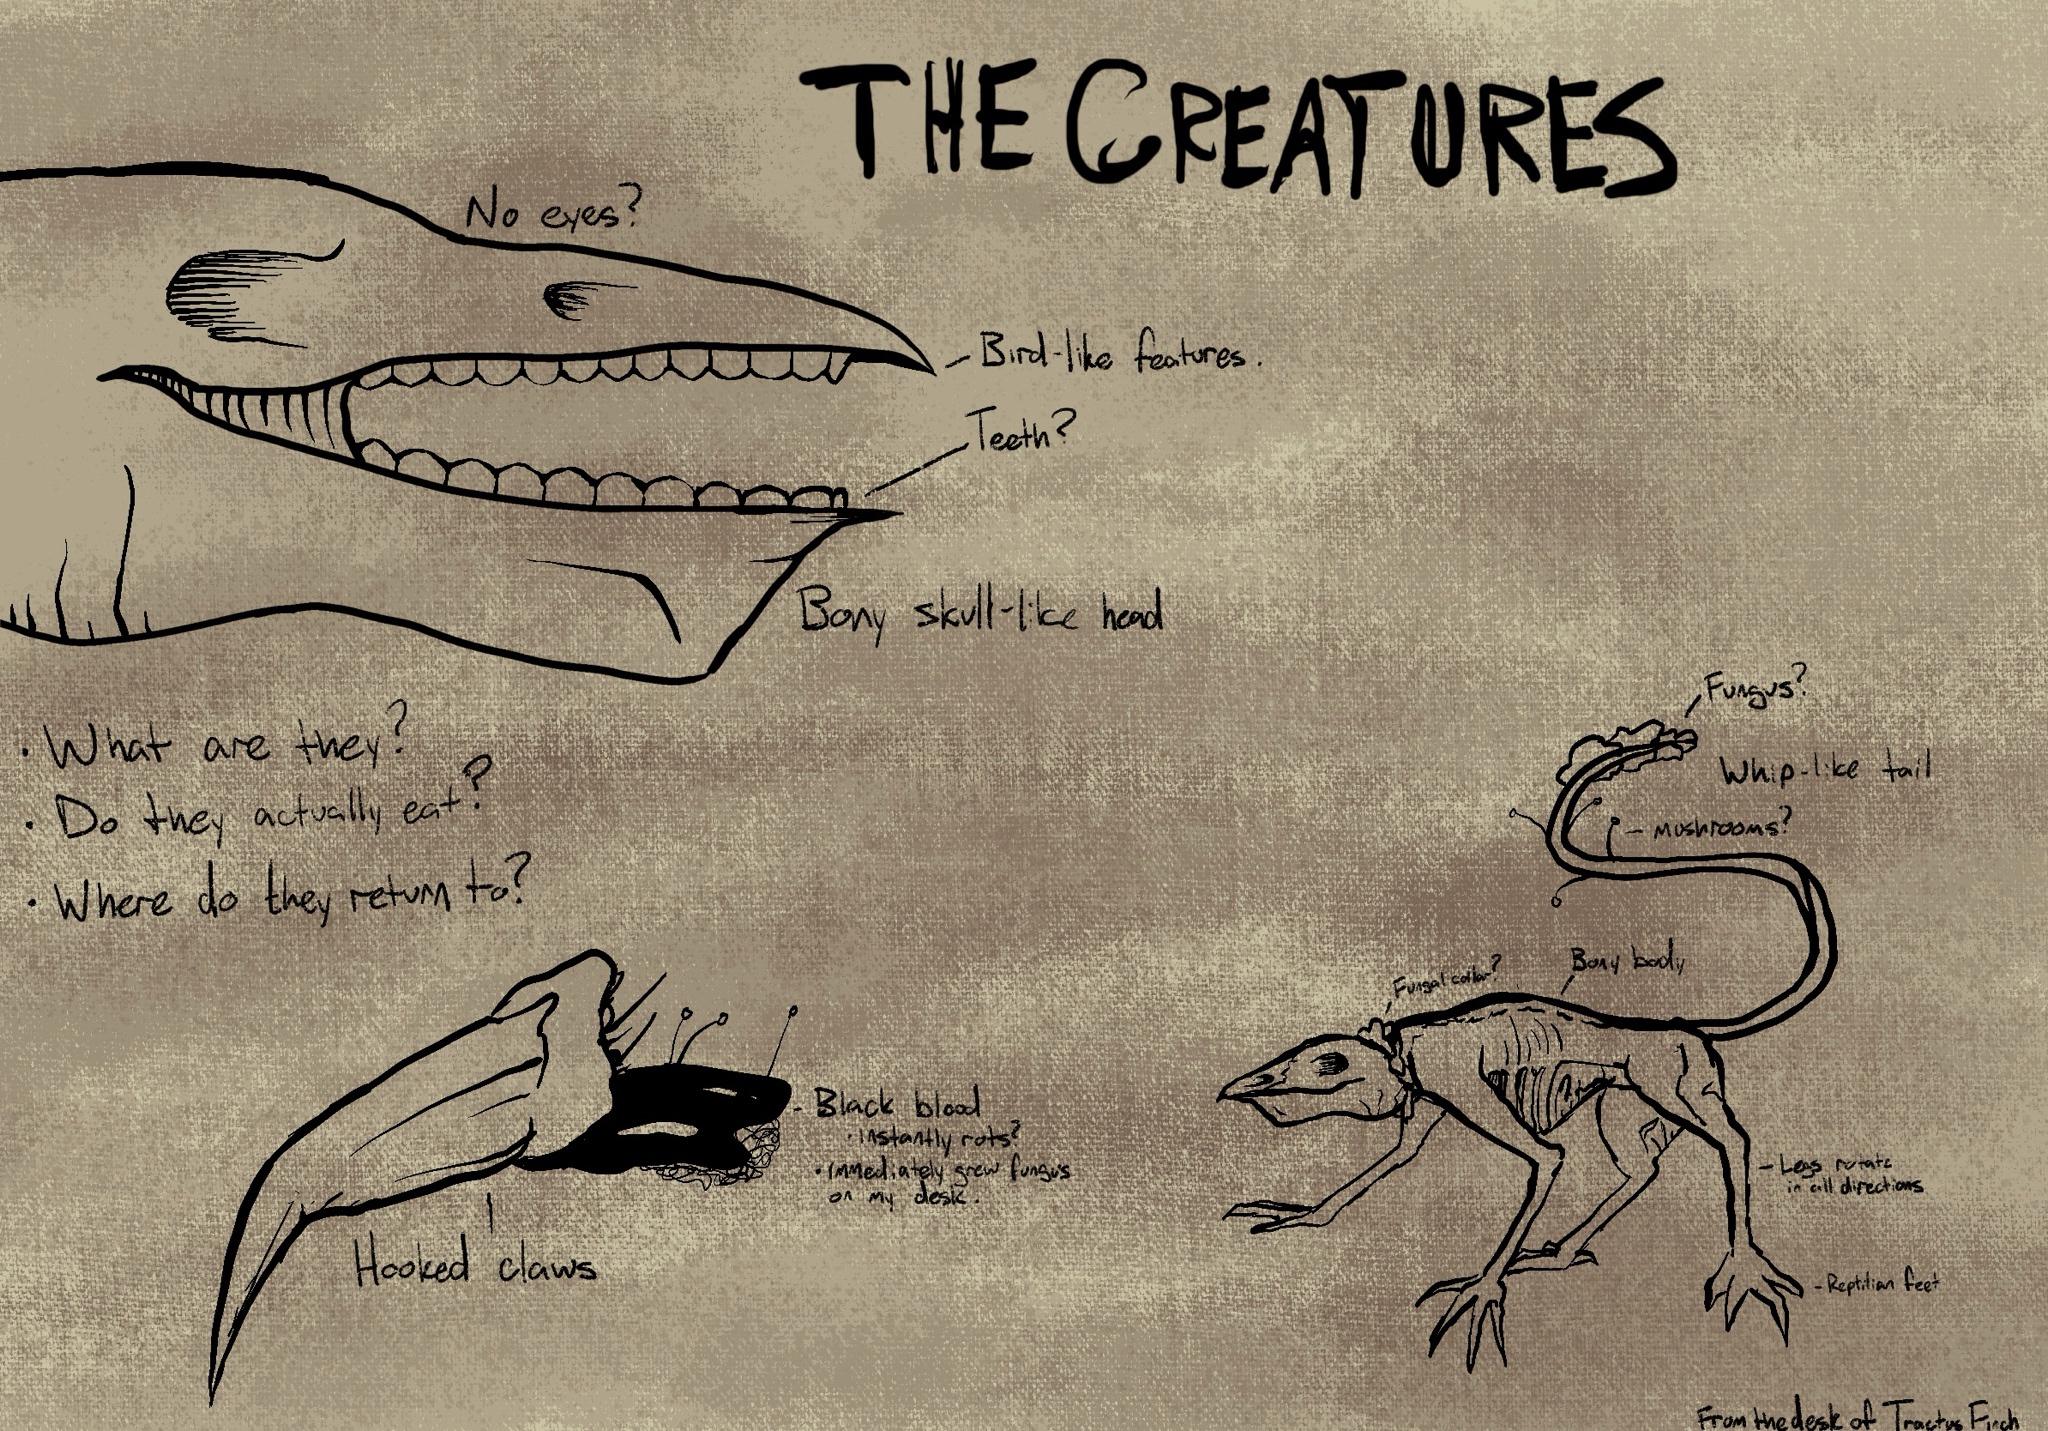 THE CREATURES
No eyes?
- Bird-like features.
Teeth?
Bony skull-like head
• What are they?
• Do they actually eat?
• Where do they return to?
Fungus?
Whip-like tail
- mushrooms?
Fungal collar?
Bony body
- Black blood
• instantly rots?
• immediately grew fungus
on my desk.
Hooked claws
- Legs rotate
in all directions
- Reptilian feet
From the desk of Tractus Finch